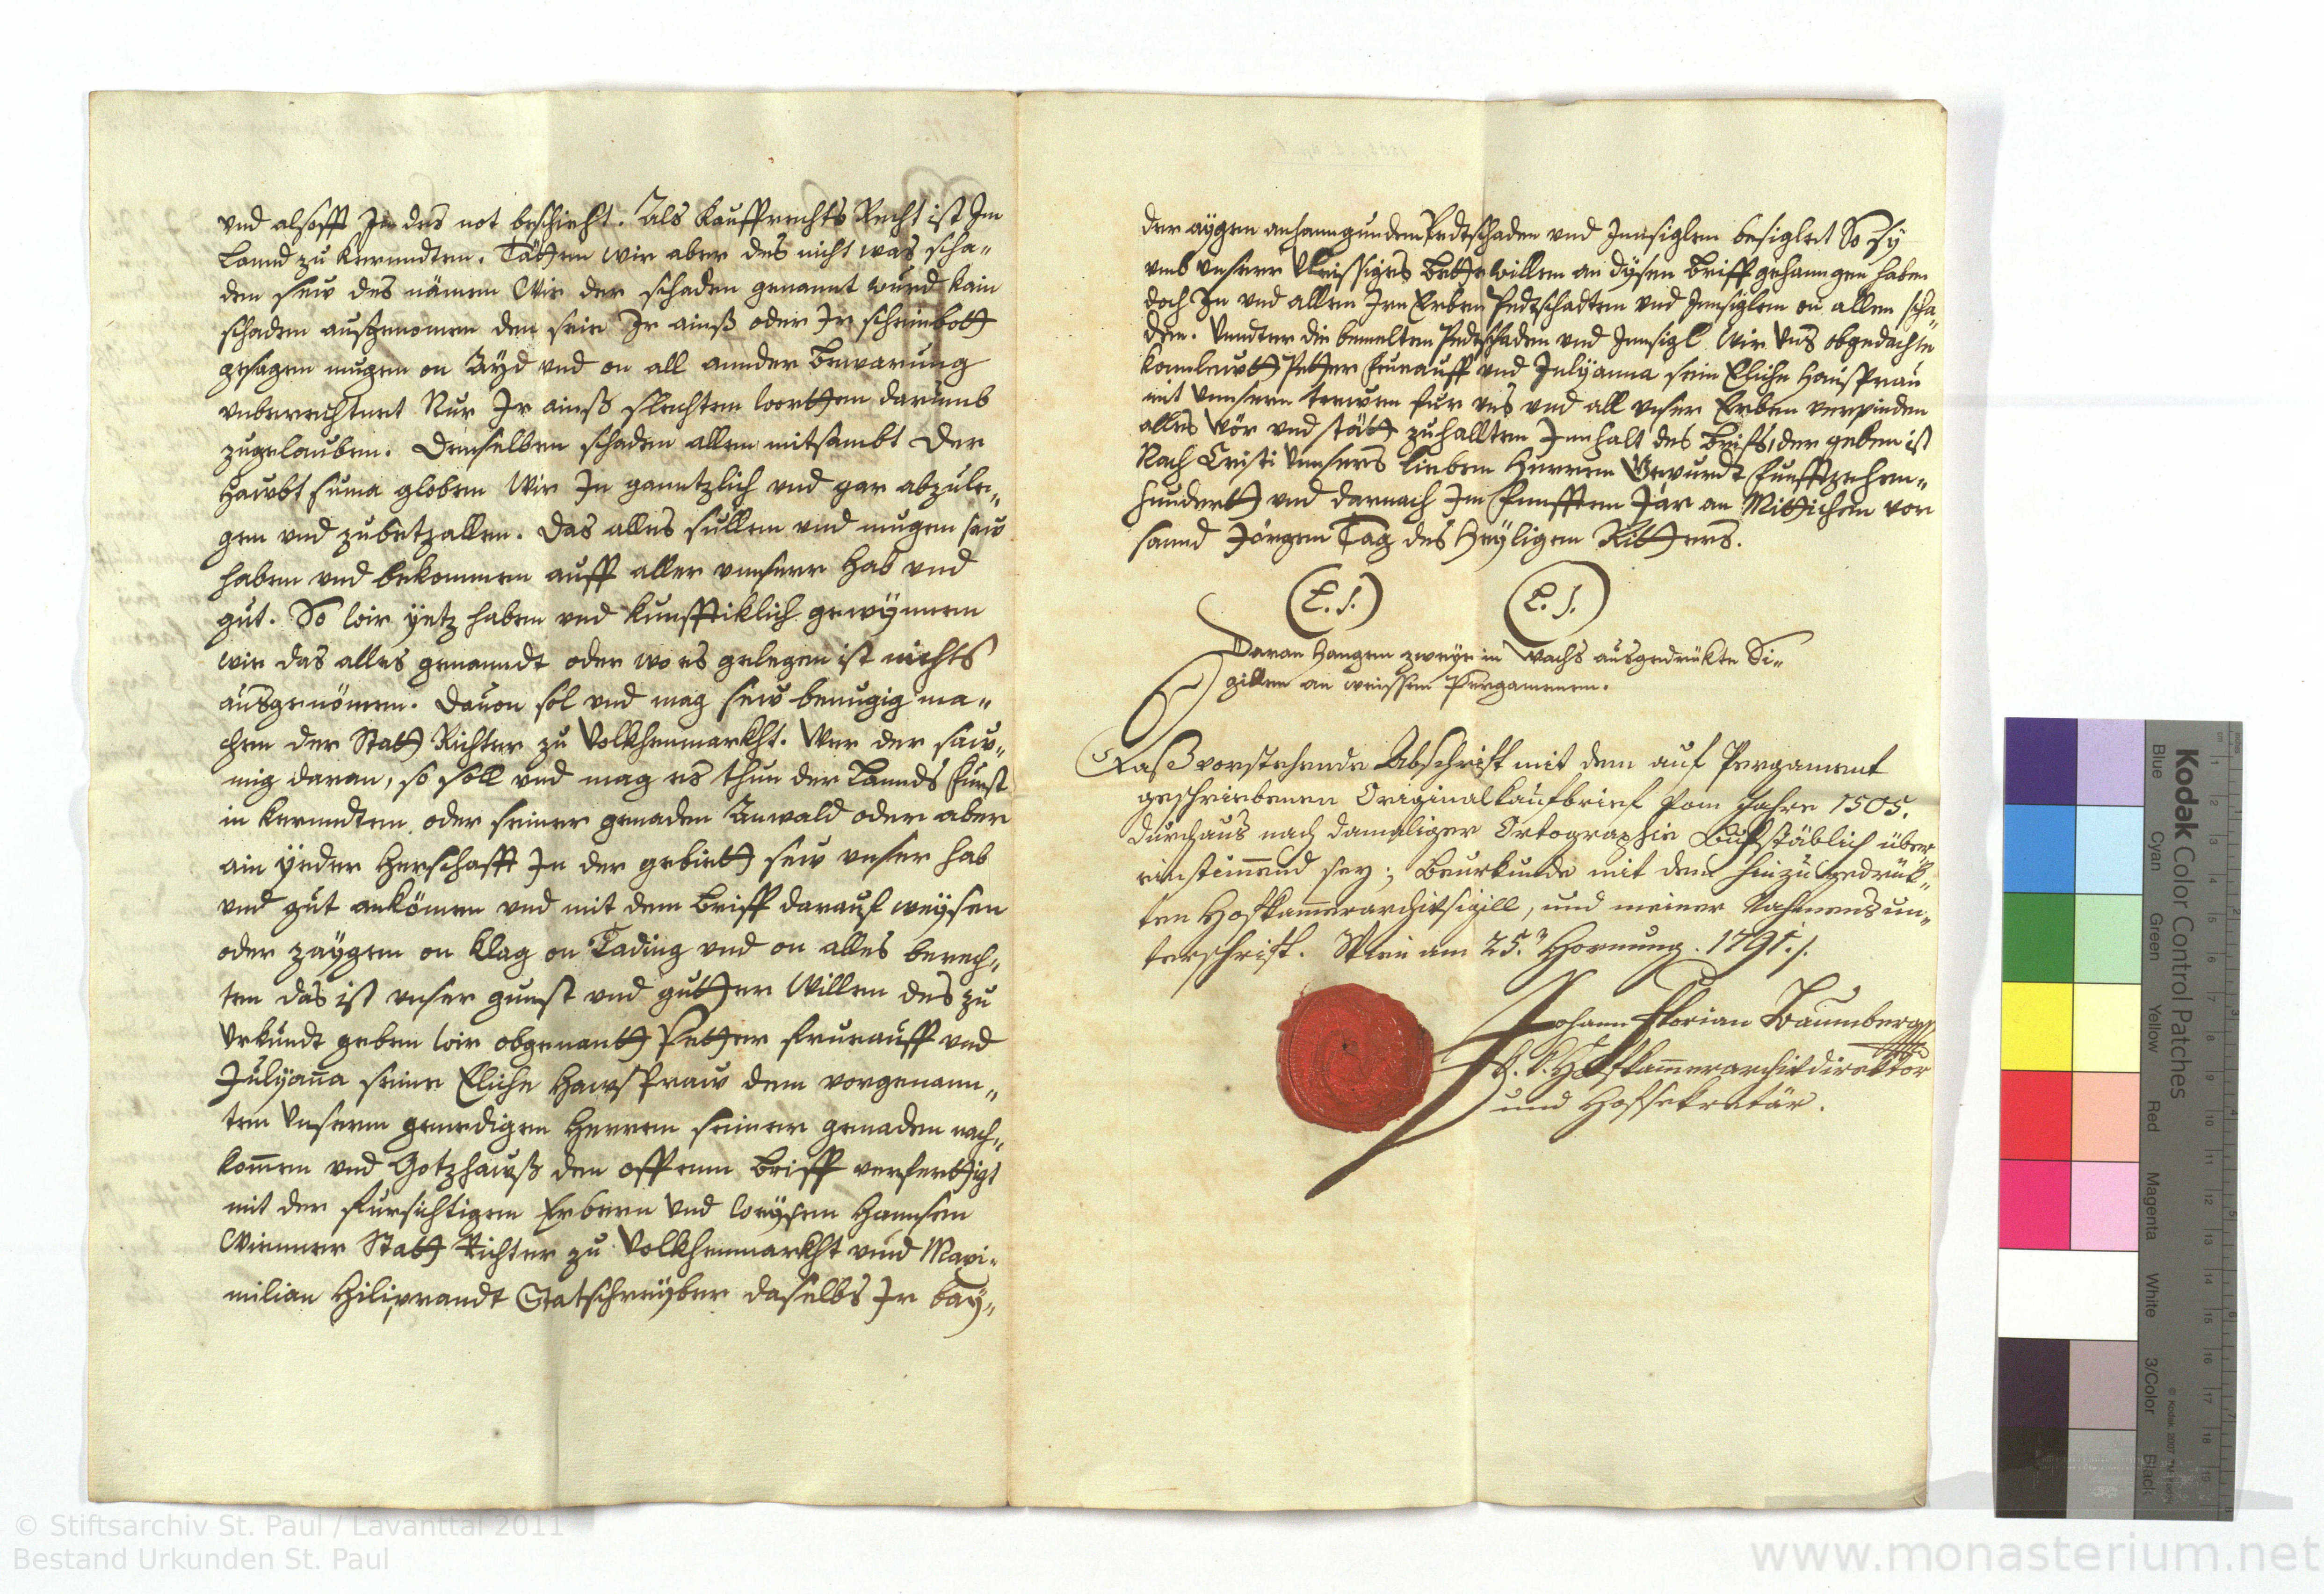 und alsofft In des not beschicht. Als kauffrechts Recht ist Im
Lannd zu Kernndten. Tätten wir aber des nicht was scha„
den sew des nämen Wie der schaden genannt wurd kain
schaden ausgenomen den sein Ir ainß oder Ir scheinbott
gesagen mugen on Ayd und on all annder Bewarung
unberechtnet Nur Ir ainß slechten wortten darumb
zugelauben. Denselben schaden allen mitsambt der
Hawbt suma globen Wir In ganntzlich und gar abzule„
gen und zubetzallen. Das alles sullen und mugen sew
haben und bekommen auff aller unnserr Hab und
gut. So wir yetz haben und kunfftiklich gewynnen
wie das alles genanndt oder wo es gelegen ist nichts
ausgenömen. Dauon sol und mag sew benugig ma„
chen der Statt Richter zu Volkhenmarkht. Wer der saw„
mig daran, so soll und mag es thun der Lannds Furst
in Kernndten oder seiner genaden Anwald oder aber
ain yeder Herschafft In der gebiett sew unser hab
und gut ankömen und mit dem Briff darauf weysen
oder zaygen on klag on Tading und on alles berech„
ten das ist unser gunst und gutter Willen des zu
Urkundt geben wir obgenantt Petter Frueauff und
Julyana seine Eliche Hawsfraw dem vorgenann„
ten Unserm genedigen Herren seiner genaden nach„
komen und Gotzhawß den offenn Briff verferttigt
mit der fursichtigen Erbern Und weysen Hannsen
Wienner Statt Richter zu Volkhenmarkht unnd Maxi„
milian Hiliprandt Statschreyber daselbs Ir bay„
der aygen anhanngunden Pedtschaden und Innsiglen besiglet So Sy
umb unserr Vleissiges Bette willen an dysen Briff gehanngen haben
doch In und allen Irn Erben Pedtschadten und Innsiglen on allen scha„
den. Unndter die bemelten Pedtschaden und Innsigl Wir Uns obgedachte
Konlewtt Petter Frueauff und Julyanna sein Eliche Hausfrau
mit unnsern trewen fur uns und all unser Erben verpinden
alles Wör und stätt zuhallten Innhalt des Briefs, der geben ist
Nach Cristi Unnsers lieben Herren Gepurdt Funfftzehen„
hundertt und darnach Im Funfften Jar an Mittichen vor
sannd Jörgen Tag des Heyligen Ritters.
(L. S.) (L. S.)
Daran Hangen zweye in Wachs ausgedrükte Si„
gillen an weissen Pergamenen.
Daß vorstehende Abschrift mit dem auf Pergament
geschriebenen Originalkaufbrief vom Jahre 1505.
durchaus nach damaliger Ortographie Buchstäblich über„
einstimmend sey; Beurkunde mit dem hinzu gedrük„
ten Hofkammerarchivsigill, und meiner Nahmensun„
terschrift. Wien am 25.n Hornung. 1791./.
Johann Florian Baumberg
K. K. Hofkammerarchivdirektor
und Hofsekretär.
© Stiftsarchiv St. Paul / Lavanttal 2011
Bestand Urkunden St. Paul
www.monasterium.net
Kodak Color Control Patches
Blue Cyan Green Yellow Red Magenta White 3/Color Black
© Kodak, 2007